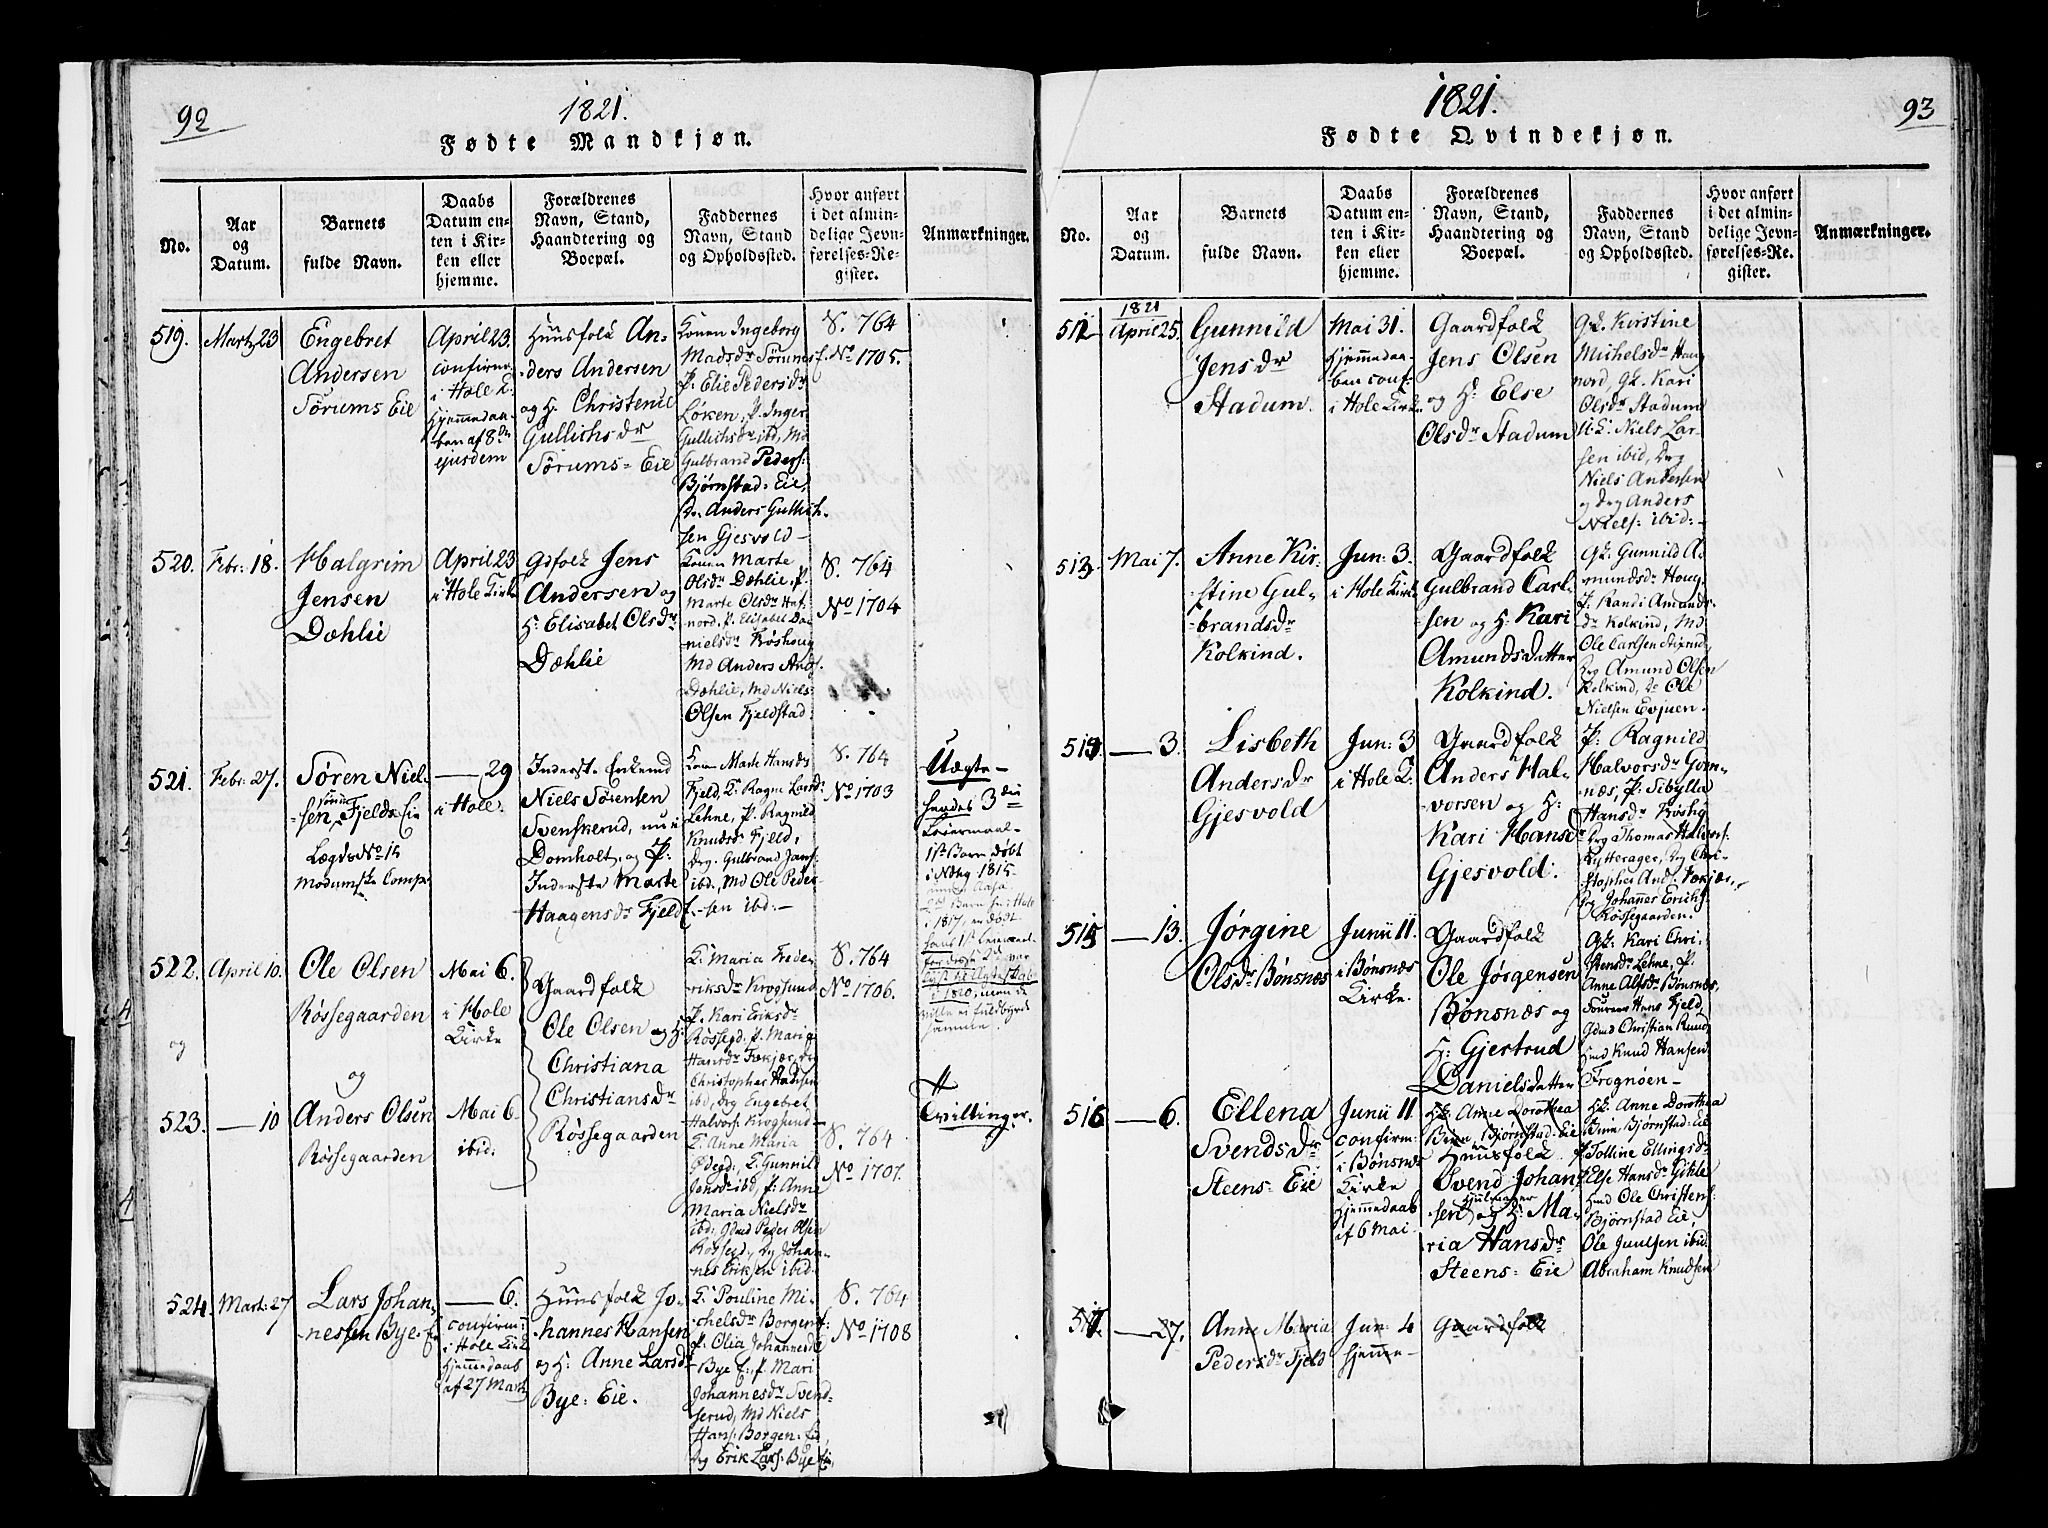 92
1821.
Fødte Mandkjøn.
No.
Aar
og
Datum.
Barnets
fulde Navn.
Daabs
Datum en-
ten i Kir-
ken eller
hjemme.
Forældrenes
Navn, Stand,
Haandtering og
Boepæl.
Faddernes
Navn, Stand
og Opholdssted.
Hvor anført
i det almin-
delige Jevn-
førelses-Re-
gister.
Anmærkninger.
519.
Martz 23
Engebret
Andersen
Sørums Eie
April 23.
confirm.
i Hole K.
Hjemmedaa-
ben af 8de
ejusdem
Huusfolk An-
ders Andersen
og H: Christenle
Gullichsdr
Sørums-Eie
Konen Ingeborg
Madsdr Sørums E.
P. Elie Pedersdr
Løken, P. Inger
Gullichsdr ibd, Md
Gulbrand Peders:
Bjørnstad-Eie,
Do Anders Gullich-
sen Gjesvold-
S. 764
No 1705.
520.
Febr: 18.
Halgrim
Jensen
Dæhlie
April 23
i Hole Kirke
Gdfolk Jens
Andersen og
H: Elisabet Olsdr
Dæhlie
Konen Marte
Olsdr Dæhlie, P.
Marte Olsdr Haf-
nord, P. Elisabet Da-
nielsdr Røshoug
Md Anders Ands.
Dæhlie, Md Niels
Olsen Fjeldstad.
S. 764
No 1704
521.
Febr: 27.
Søren Niel-
sen Fjelds Eie
Lægds No 14
Modumske Comp.
— 29
i Hole.
Inderst. Enkemd
Niels Sørensen
Svenskerud, nu i
Domholt, og P:
Inderste Marte
Haagensdr Fjeld E.
Kone Marte Hansdr
Fjeld, K. Ragne Larsd:
Lehne, P. Ragnild
Knudsdr Fjeld,
Drg. Gulbrand Jans:
ibd, Md Ole Peder-
sen ibd.-
S. 764
No 1703
Uægte-
hendes 3die
Leiermaal-
1st Barn døbt
i 1815
2det Barn i Hole
i 1817, er dødt
hans 1st Leiermaal
522.
April 10.
Ole Olsen
Røssegaarden
Mai 6.
i Hole
Kirke
Gaardfolk
Ole Olsen og H:
Christiana
Christiansdr
Røssegaarden
K. Maria Frede-
riksdr Kroglund
P. Kari Eriksdr
Røssegd, P. Maria
Hansdr Fækjær, Drg
Christopher Hansen
ibd, Drg Engebret
Halvors: Kroglund-
S. 764
No 1706.
og
og
523.
— 10
Anders Olsen
Røssegaarden
Mai 6.
ibid.
K. Anne Maria
K. Gunnild
Jensdr ibd, P: Anne
Maria Nielsdr
ibd, Gdmd Peder Olsen
Røssegd, Drg Johan-
nes Eriksen ibid.
S. 764
No 1707.
Tvillinger.
524.
Mart: 27
Lars Johan-
nessen Bye-Eie
— 6.
confirm:
i Hole Kirk
Hjemmedaab
af 27 Mart
Huusfolk Jo-
hannes Hansen
og H: Anne Larsdr
Bye: Eie.
K. Pouline Mi-
chelsdr Borgen E.
P. Olia Johannesdr
Bye E., P. Mari
Johannesdr Svend-
serud, Md Niels
Hans: Borgen-Eie,
Drg Erik Lars: Bye Eie
S. 764
No 1708
93
1821.
Fødte Qvindekjøn.
No.
Aar
og
Datum.
Barnets
fulde Navn.
Daabs
Datum en-
ten i Kir-
ken eller
hjemme.
Forældrenes
Navn, Stand,
Haandtering og
Boepæl.
Faddernes
Navn, Stand
og Opholdssted.
Hvor anført
i det almin-
delige Jevn-
førelses-Re-
gister.
Anmærkninger.
512
1821
April 25.
Gunnild
Jensdr
Stadum.
Mai 31.
Hjemmedaa-
ben conf.
i Hole Kirke.
Gaardfolk
Jens Olsen
og H: Else
Olsdr Stadum
Gk. Kirstine
Michelsdr Haug
nord, Gk. Kari
Olsdr Stadum
Niels Lar-
sen ibid, Drg
Niels Andersen
og Drg Anders
Niels: ibid:-
513.
Mai 7.
Anne Kir-
stine Gul-
brandsdr
Kolkind.
Jun: 3.
i Hole Kirk
Gaardfolk
Gulbrand Carl-
sen og H: Kari
Amundsdatter
Kolkind.
Gk. Gunnild A-
mundsdr Houg
P. Randi Amunds-
dr Kolkind, Md
Ole Carlsen
Drg Amund Olsen
Kolkind, do Ole
Nielsen Evjuen.
514
— 3.
Lisbeth
Andersdr
Gjesvold
Jun: 3
i Hole K.
Gaardfolk
Anders Hal-
vorsen og H:
Kari Hansdr
Gjesvold.
P: Ragnild
Halvorsdr Gom-
næs, P: Sibylla
Hansdr Røshg
Drg Thomas Halvors:
Rytterager, Drg Chri-
stopher Ands. Fækjær,
Drg Johannes Erichs:
Røssegaarden.
515
— 13.
Jørgine
Olsdr Bønsnæs
Junii 11.
i Bønsnæs
Kirke.
Gaardfolk
Ole Jørgensen
Bønsnæs og
H: Gjertrud
Danielsdatter
Gk: Kari Chri-
stensdr Lehne, P.
Anne Alfsdr Bønsnæs,
Hans Fjeld
Gdmd Christian Rund
Hmd Knud Hansen
Frognøen-
516
— 6.
Ellena
Svendsdr
Steens-Eie
Junii 11
confirm:
i Bønsnæs
Kirke
Hjemmedaab
af 6 Mai.
Hk. Anne Dorothea
Bjørnstad-Eie
Huusfolk
Svend Johan-
sen Hjulmager og H: Ma-
ria Hansdr
Steens-Eie
Hk. Anne Dorothea
Bjørnstad-Eie
P Tolline Ellingsdr
P Else Hansdr Gihle
Hmd Ole Christens:
Bjørnstad Eie,
Ole Juulsen ibid.
Abraham Knudsen
517.
— 27.
Anne Maria
Pedersdr Fjeld
Jun: 4
hjemme-
Gaardfolk